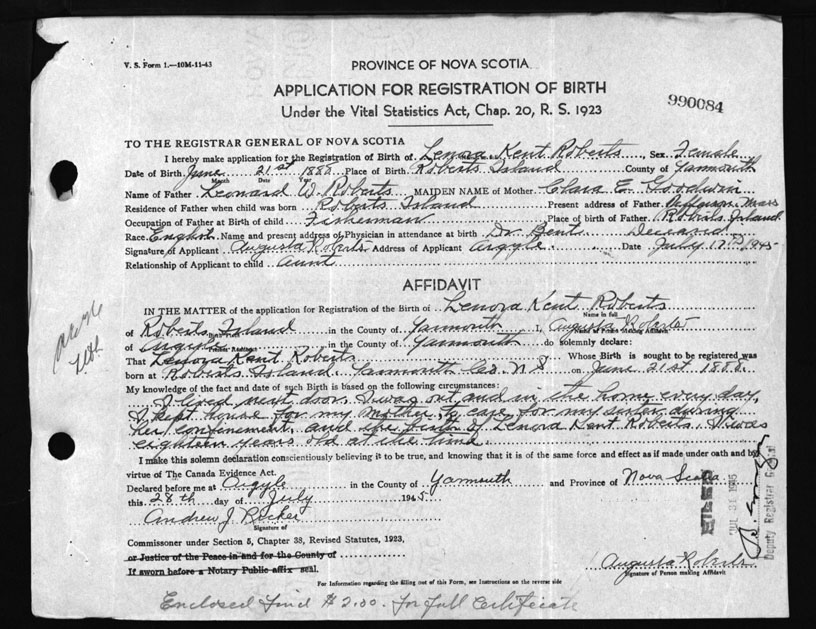 V. S. Form 1.—10M-11-43
PROVINCE OF NOVA SCOTIA
APPLICATION FOR REGISTRATION OF BIRTH
Under the Vital Statistics Act, Chap. 20, R. S. 1923
990084
TO THE REGISTRAR GENERAL OF NOVA SCOTIA
I hereby make application for the Registration of Birth of Lenora Kent Roberts, Sex Female
Date of Birth June 21st 1888 Place of Birth Roberts Island County of Yarmouth
Month Date Year
Name of Father Leonard W. Roberts MAIDEN NAME of Mother Clara E. Goodwin
Residence of Father when child was born Roberts Island Present address of Father Mass
Occupation of Father at Birth of child Fisherman Place of birth of Father Roberts Island
Race English Name and present address of Physician in attendance at birth Dr Bent Deceased
Signature of Applicant Augusta Roberts Address of Applicant Argyle Date July 17th 1945
Relationship of Applicant to child Aunt
AFFIDAVIT
IN THE MATTER of the application for Registration of the Birth of Lenora Kent Roberts
Name in full
of Roberts Island in the County of Yarmouth I, Augusta Roberts
of Argyle in the County of Yarmouth do solemnly declare:
That Lenora Kent Roberts Whose Birth is sought to be registered was
born at Roberts Island Yarmouth Co. N S on June 21st 1888.
My knowledge of the fact and date of such Birth is based on the following circumstances:
I lived next door, I was out and in the home every day,
I kept house for my mother, to care for my sister during
her confinement, and the birth of Lenora Kent Roberts. I was
eighteen years old at the time
I make this solemn declaration conscientiously believing it to be true, and knowing that it is of the same force and effect as if made under oath and by
virtue of The Canada Evidence Act.
Declared before me at Argyle in the County of Yarmouth and Province of Nova Scotia
this 28th day of July 1945
Andrew J. Ricker
Signature of
Commissioner under Section 5, Chapter 38, Revised Statutes, 1923,
or Justice of the Peace in and for the County of
If sworn before a Notary Public affix seal.
Augusta Roberts
Signature of Person making Affidavit
For Information regarding the filling out of this Form, see Instructions on the reverse side
Enclosed find $2.00. for full Certificate
FILED
JUL 31 1945
Deputy Registrar General